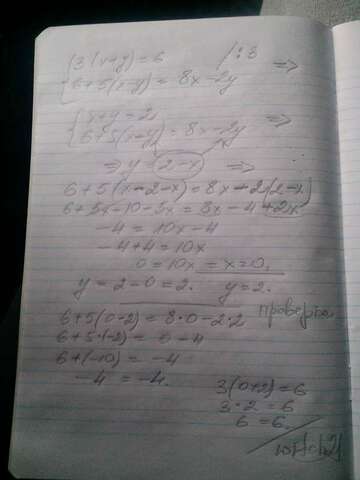 {3(x+y)=6 /:3 =>
{6+5(x-y)=8x-2y
{x+y=2 =>
{6+5(x-y)=8x-2y
=> y=2-x =>
6+5(x-2-x)=8x-2(2-x)
6+5x-10-5x=8x-4+2x
-4=10x-4
-4+4=10x
0=10x =x=0.
y=2-0=2. y=2.
проверка
6+5(0-2)=8·0-2·2
6+5·(-2)=0-4
6+(-10)=-4
-4=-4.
3(0+2)=6
3·2=6
6=6.